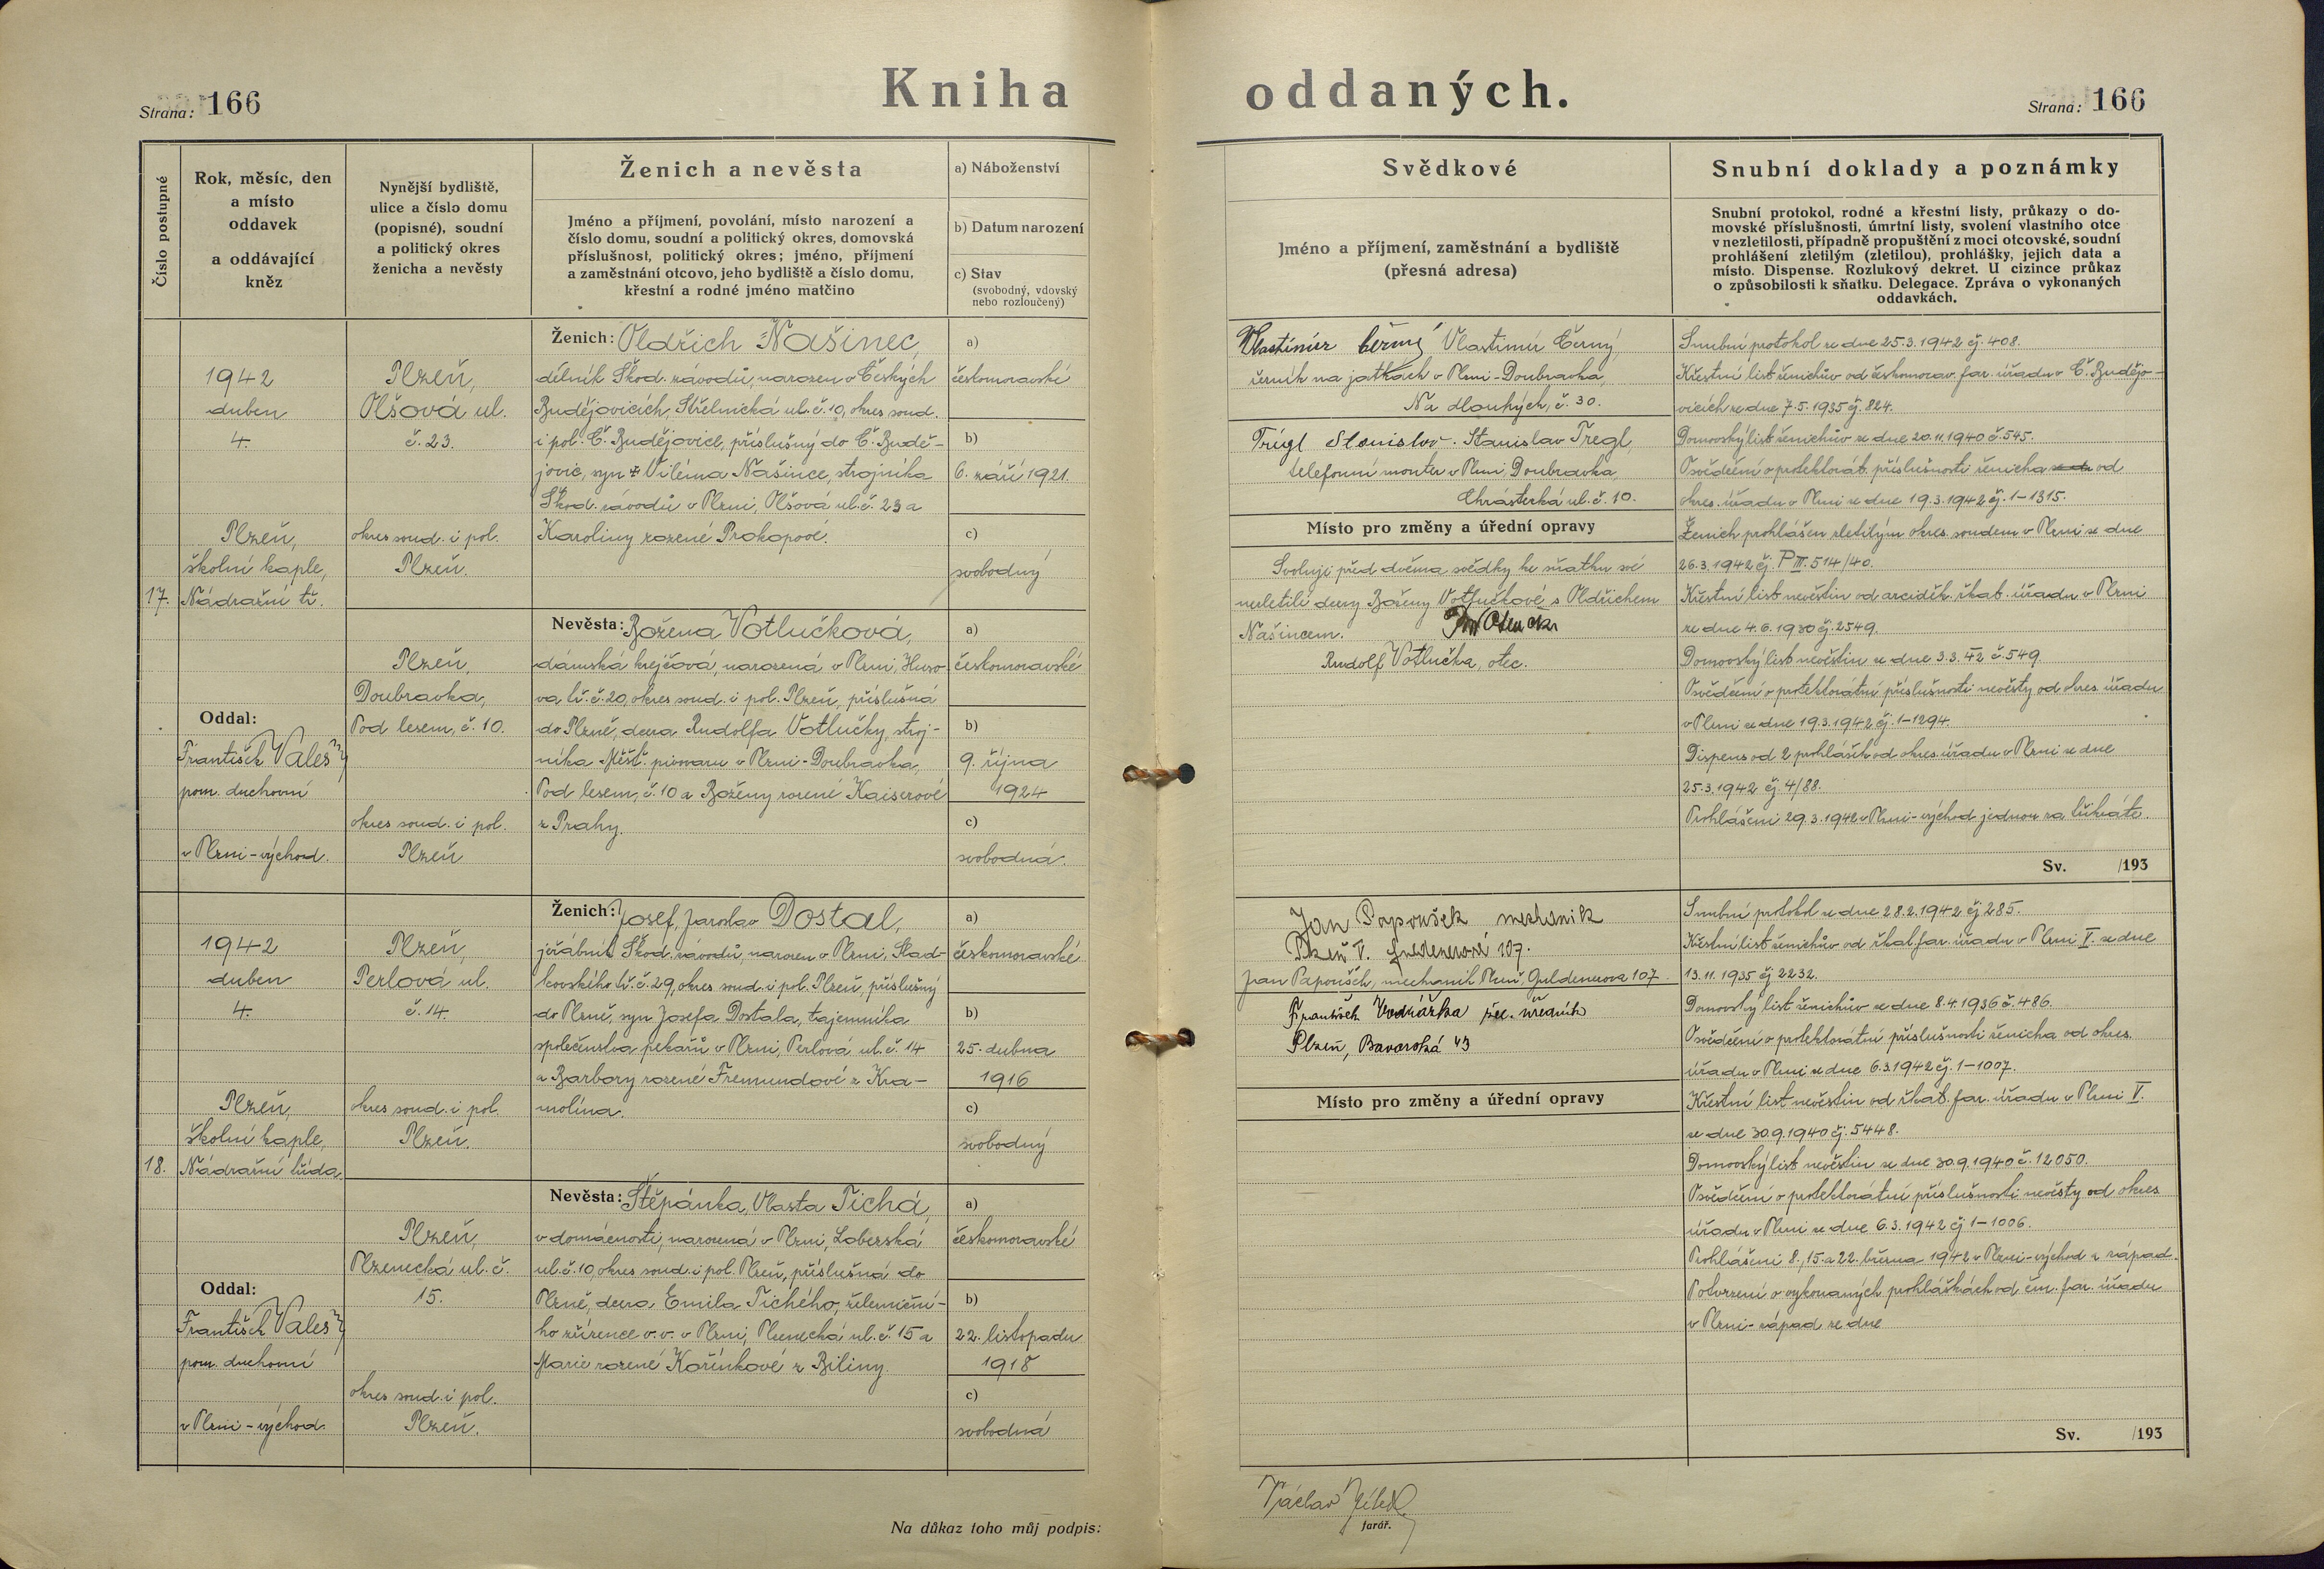 Kniha oddaných.
Strana: 166
Strana: 166
Číslo postupné
Rok, měsíc, den
a místo
oddavek
a oddávající
kněz
Nynější bydliště,
ulice a číslo domu
(popisné), soudní
a politický okres
ženicha a nevěsty
Ženich a nevěsta
Jméno a příjmení, povolání, místo narození a
číslo domu, soudní a politický okres, domovská
příslušnost, politický okres; jméno, příjmení
a zaměstnání otcovo, jeho bydliště a číslo domu,
křestní a rodné jméno matčino
a) Náboženství
b) Datum narození
c) Stav
(svobodný, vdovský
nebo rozloučený)
Svědkové
Jméno a příjmení, zaměstnání a bydliště
(přesná adresa)
Snubní doklady a poznámky
Snubní protokol, rodné a křestní listy, průkazy o do-
movské příslušnosti, úmrtní listy, svolení vlastního otce
v nezletilosti, případně propuštění z moci otcovské, soudní
prohlášení zletilým (zletilou), prohlášky, jejich data a
místo. Dispense. Rozlukový dekret. U cizince průkaz
o způsobilosti k sňatku. Delegace. Zpráva o vykonaných
oddavkách.
17.
1942
duben
4.
Plzeň,
školní kaple,
Nádražní tř.
Oddal:
František Valeš
pom. duchovní
v Plzni-východ.
Plzeň,
Olšová ul.
č. 23.
okres soud. i pol.
Plzeň.
Plzeň,
Doubravka,
Pod lesem, č. 10.
okres soud. i pol.
Plzeň
Ženich: Oldřich Našinec,
dělník Škod. závodů, narozen v Českých
Budějovicích, Střelnická ul. č. 10, okres soud.
i pol. Č. Budějovice, příslušný do Č. Budě-
jovic, syn Viléma Našince, strojníka
Škod. závodů v Plzni, Olšová ul. č. 23 a
Karoliny rozené Prokopové.
a)
českomoravské
b)
6. září 1921.
c)
svobodný
Nevěsta: Božena Votlučková,
dámská krejčová, narozená v Plzni, Huso-
va tř. č. 20, okres soud. i pol. Plzeň, příslušná
do Plzně, dcera Rudolfa Votlučky, stroj-
níka Měšť. pivovaru v Plzni-Doubravka,
Pod lesem, č. 10 a Boženy rozené Kaiserové
z Prahy.
a)
českomoravské
b)
9. října
1924
c)
svobodná.
Vlastimír Černý Vlastimír Černý,
řezník na jatkách v Plzni-Doubravka,
Na dlouhých, č. 30.
Stanislav Stanislav Tregl,
telefonní montér v Plzni, Doubravka,
Chrástecká ul. č. 10.
Místo pro změny a úřední opravy
Svoluji před dvěma svědky ke sňatku své
nezletilé dcery Boženy Votlučkové s Oldřichem
Našincem.
Rudolf Votlučka, otec.
Snubní protokol ze dne 25.3.1942 čj. 408.
Křestní list ženichův od českomorav. far. úřadu v Č. Budějo-
vicích ze dne 7.5.1935 čj. 824.
Domovský list ženichův ze dne 20.11.1940 č. 545.
Osvědčení o protektorát. příslušnosti ženicha od
okres. úřadu v Plzni ze dne 19.3.1942 čj. 1-1315.
Ženich prohlášen zletilým okres. soudem v Plzni ze dne
26.3.1942 čj. P III. 514/40.
Křestní list nevěstin od arciděk. řkat. úřadu v Plzni
ze dne 4.6.1930 čj. 2549.
Domovský list nevěstin ze dne 3.3.42 č. 549.
Osvědčení o protektorátní příslušnosti nevěsty od okres. úřadu
v Plzni ze dne 19.3.1942 čj. 1-1294.
Dispens od 2 prohlášek od okres. úřadu v Plzni ze dne
25.3.1942 čj. 4/88.
Prohlášeni 29.3.1942 v Plzni-východ jednou za třikráte.
Sv. /193
18.
1942
duben
4.
Plzeň,
školní kaple,
Nádražní třída.
Oddal:
František Valeš
pom. duchovní
v Plzni-východ.
Plzeň,
Perlová ul.
č. 14.
okres soud. i pol.
Plzeň.
Plzeň,
Plzenecká ul. č.
15.
okres soud. i pol.
Plzeň.
Ženich: Josef, Jaroslav Dostal,
jeřábník Škod. závodů, narozen v Plzni, Slad-
kovského tř. č. 29, okres soud. i pol. Plzeň, příslušný
do Plzně, syn Josefa Dostala, tajemníka
společenstva pekařů v Plzni, Perlová ul. č. 14
a Barbory rozené Fremundové z Kra-
molína.
a)
českomoravské
b)
25. dubna
1916
c)
svobodný
Nevěsta: Štěpánka, Vlasta Tichá,
v domácnosti, narozená v Plzni, Lobezská
ul. č. 10, okres soud. i pol. Plzeň, příslušná do
Plzně, dcera Emila Tichého, železniční-
ho zřízence v.v. v Plzni, Plzenecká ul. č. 15 a
Marie rozené Kořínkové z Biliny.
a)
českomoravské
b)
22. listopadu
1918
c)
svobodná
Jan Papoušek mechanik
Plzeň V. Guldenerová 107.
Jan Papoušek, mechanik Plzeň, Guldenerova 107.
František Vodrážka úředník
Plzeň, Bavorská 43
Místo pro změny a úřední opravy
Snubní protokol ze dne 28.2.1942 čj. 285.
Křestní list ženichův od řkat. far. úřadu v Plzni V. ze dne
13.11.1935 čj. 2232.
Domovský list ženichův ze dne 8.4.1936 č. 486.
Osvědčení o protektorátní příslušnosti ženicha od okres.
úřadu v Plzni ze dne 6.3.1942 čj. 1-1007.
Křestní list nevěstin od řkat. far. úřadu v Plzni V.
ze dne 30.9.1940 čj. 5448.
Domovský list nevěstin ze dne 30.9.1940 č. 12050.
Osvědčení o protektorátní příslušnosti nevěsty od okres.
úřadu v Plzni ze dne 6.3.1942 čj. 1-1006.
Prohlášeni 8., 15. a 22. března 1942 v Plzni-východ a západ.
Potvrzení o vykonaných prohláškách od čm. far. úřadu
v Plzni-západ ze dne
Sv. /193
Na důkaz toho můj podpis:
Václav
farář.